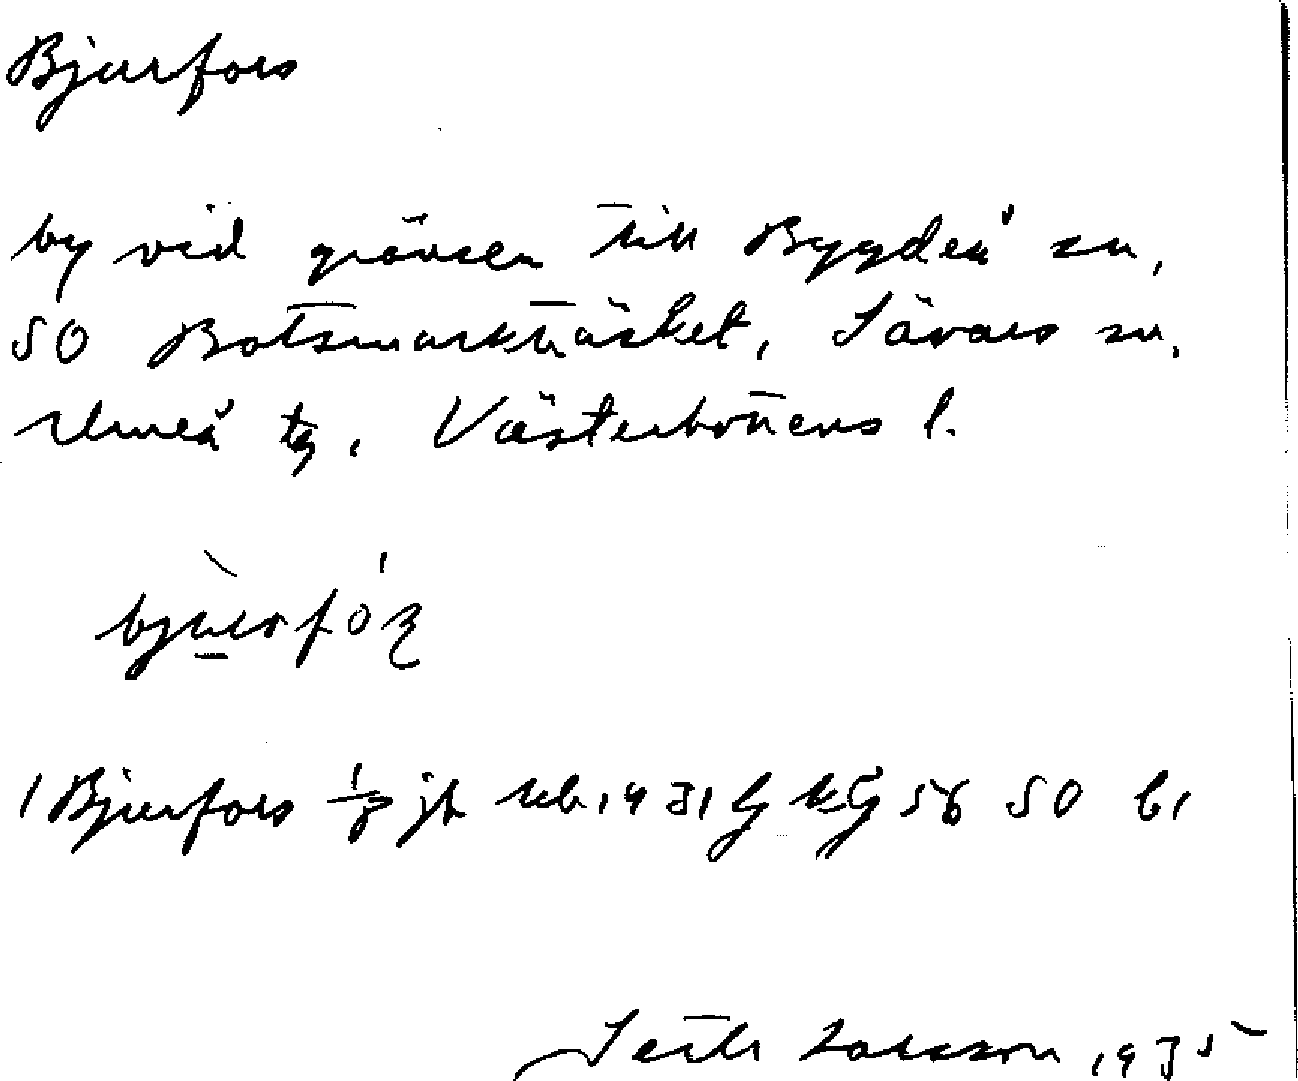 Bjurfors
by vid gränsen till Bygdeå sn,
SO Botsmarkträsket, Sävars sn,
Umeå tg, Västerbottens l.
Bjurfors jb 1931 kg 56 SO b1
Seth Larsson 1935